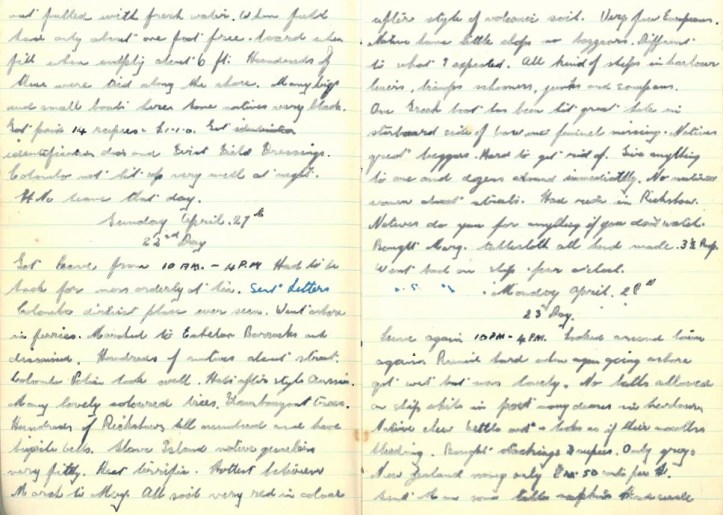 not filled with fresh water. When full
have only about one foot free board when
full when empty about 6 ft. Hundreds of
these were tied along the shore. Many big
and small boats here have natives very black.
Got paid 14 rupees - £1-1-0. Got
identification discs and First Field Dressings.
Colombo not lit up very well at night.
No leave that day.
Sunday April. 27th
22nd Day
Got leave from 10 AM. - 4 P.M Had to be
back for mess orderly at tea. Sent Letters
Colombo dirtiest place ever seen. Went ashore
in ferries. Marched to Barracks and
dismissed. Hundreds of natives about streets.
Colombo Police look well. Hats after style Aussie.
Many lovely coloured trees. Flamboyant trees.
Hundreds of Rickshaws all numbered and have
bicycle bells. Slave Island native quarters
very filthy. Heat terrific. Hottest between
March to May. All soil very red in colour
after style of volcanic soil. Very few Europeans.
Natives have little shops or bazaars. Different
to what I expected. All kind of ships in harbour
liners, tramps schooners, junks and
One Greek boat has been hit great hole in
starboard side of bow and funnel missing. Natives
great beggars. Hard to get rid of. Give anything
to one and dozens around immediately. No native
women about streets. Had ride in Rickshaw.
Natives do you for anything if you don't watch.
Bought Marg. tablecloth all hand made. 3½ Rup.
Went back on ship for
Monday April. 28th
23rd Day.
Leave again 10 PM - 4 PM. Looked around town
again. Rained hard when again going ashore
got wet but was lovely. No lights allowed
on ship while in port in harbour.
Natives chew bettle nut - looks as if their mouths
bleeding. Bought stockings 2 rupees. Only grey.
New Zealand money only 8 Rs. 50 cents per £.
Sent home some table napkins hand made